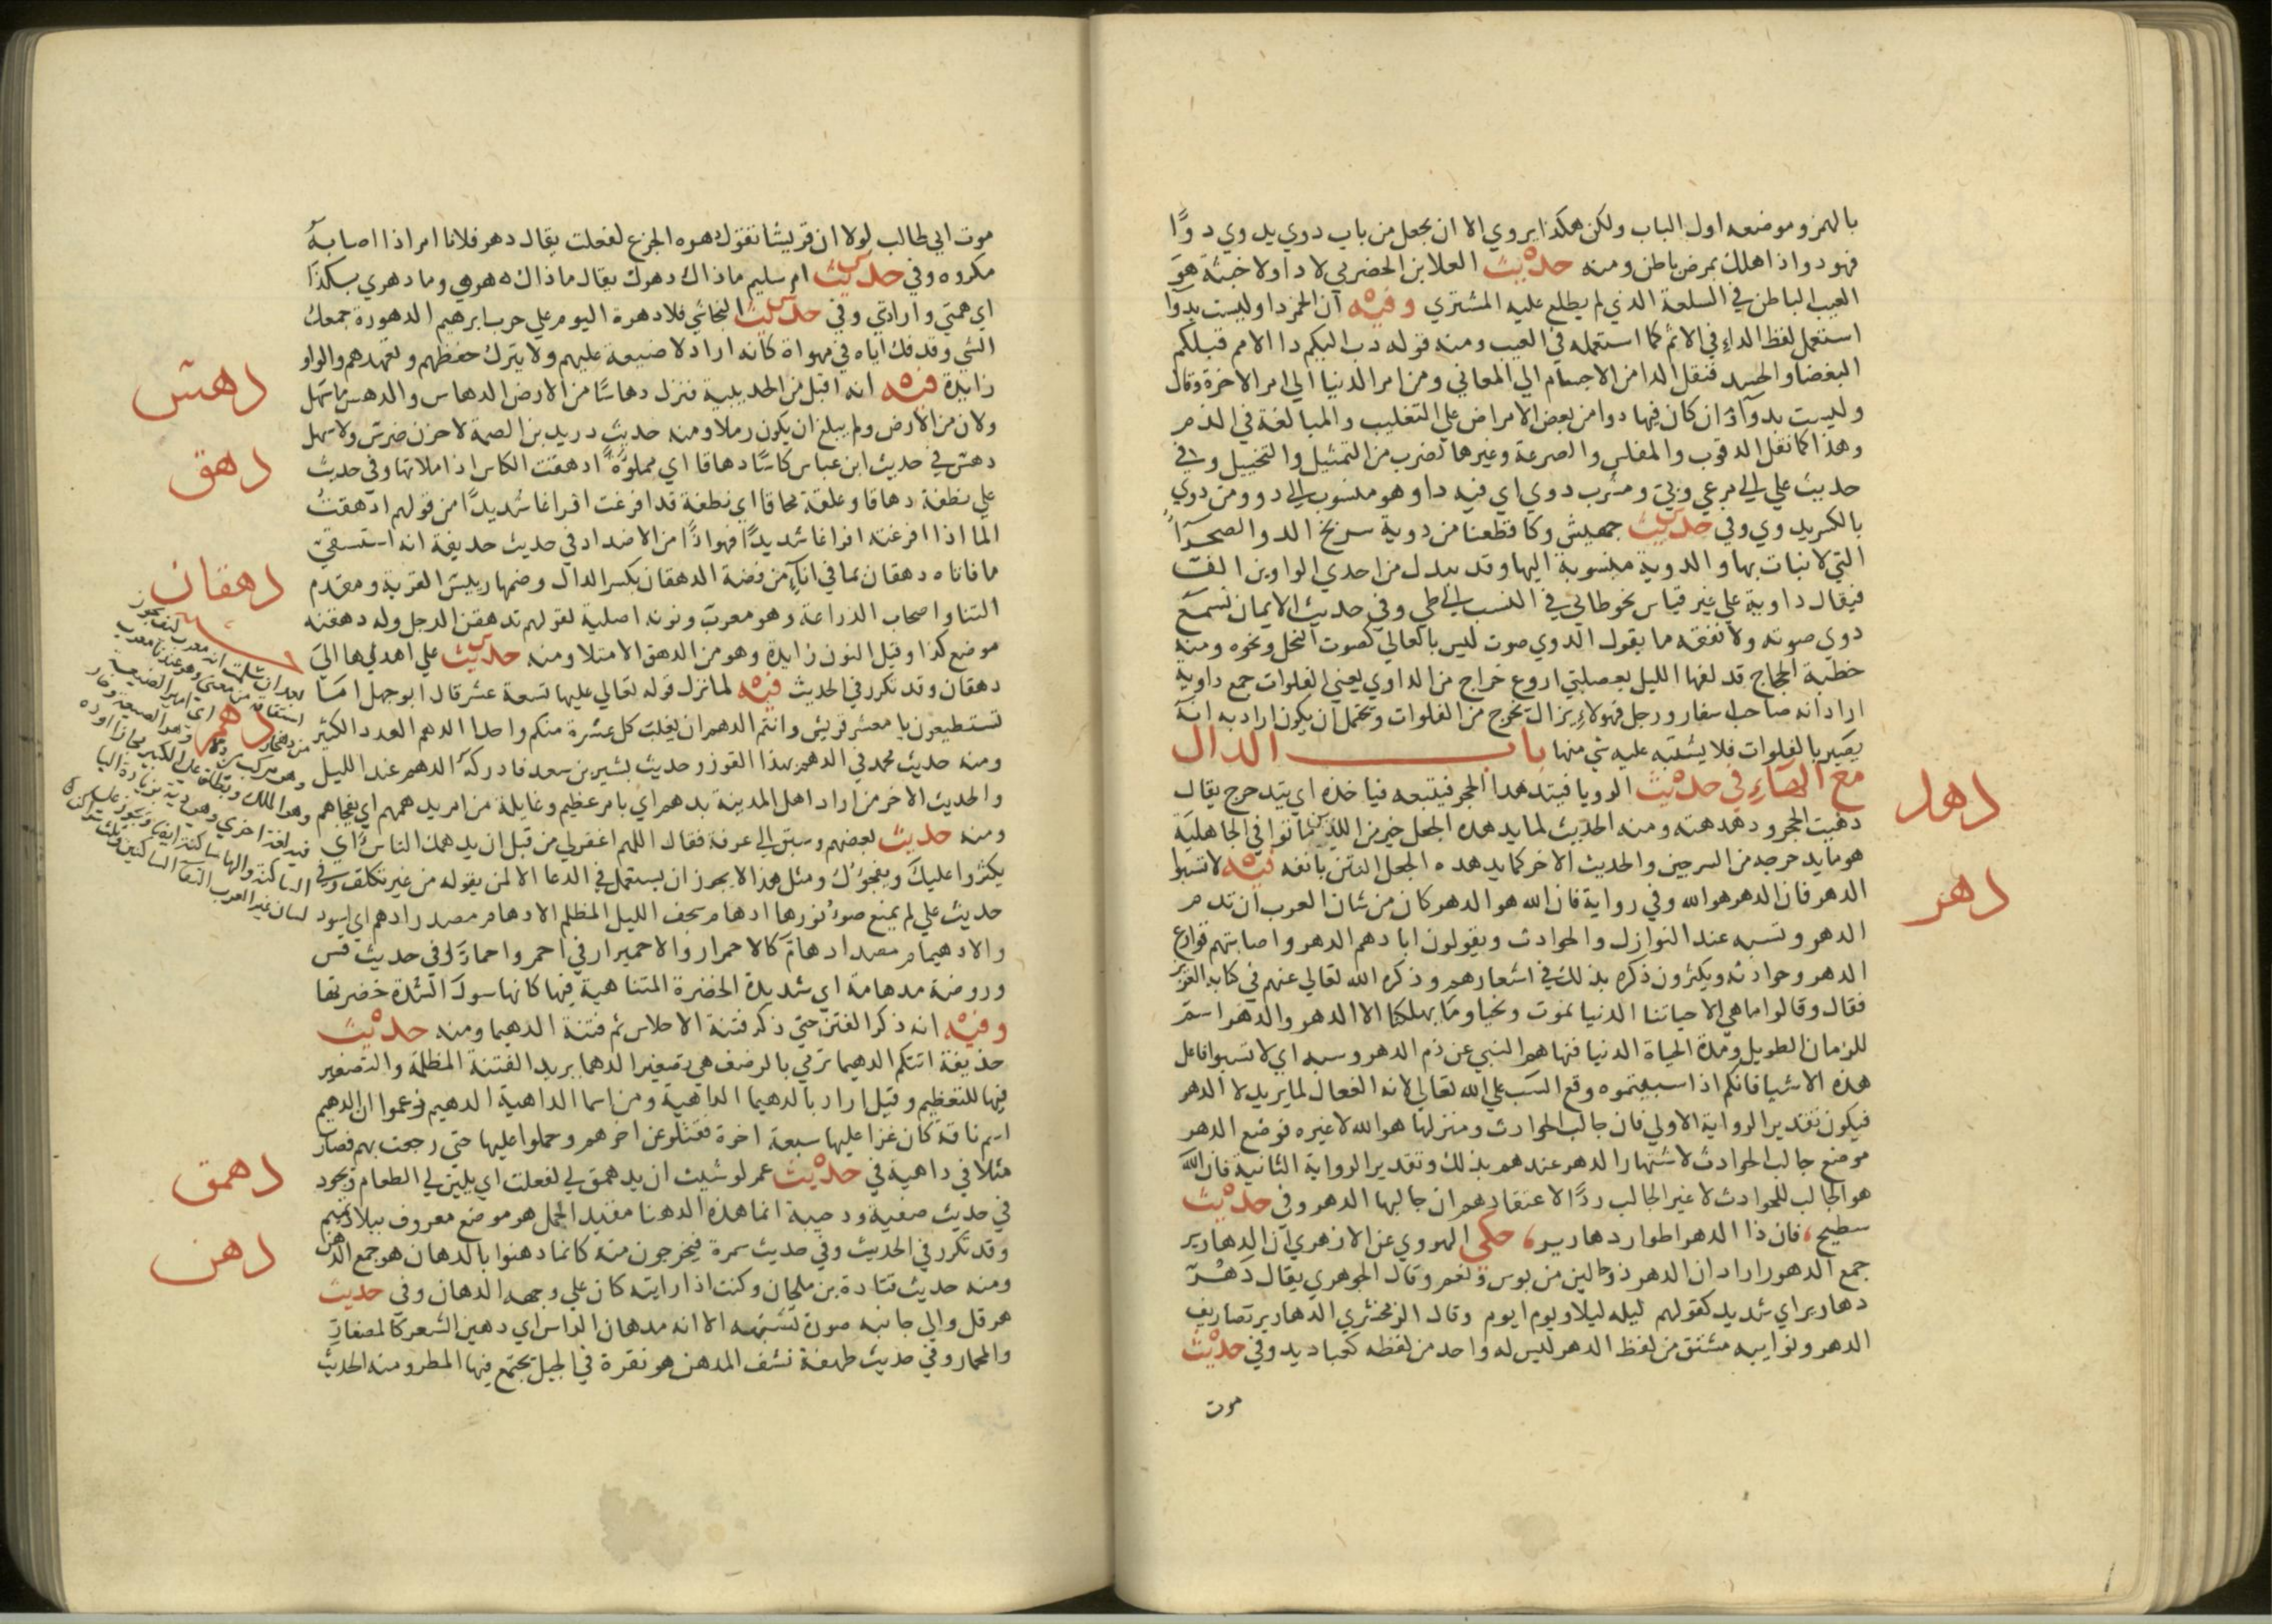 بالهمز وموضعه اول الباب ولكن هكذا يروي الا ان يجعل من باب دوي يدوي دوًا
فهو دو اذا هلك بمرض باطن ومنه حديث العلا بن الحضرمي لا دا ولا خبثة هو
العيب الباطن في السلعة الذي لم يطلع عليه المشتري وفيه ان الخمر دا وليست بدوا
استعمل لفظ الداء في الاثم كما استعمله في العيب ومنه قوله دب اليكم دا الامم قبلكم
البغضا والحسد فنقل الدا من الاجسام الي المعاني ومن امر الدنيا الي امر الاخرة وقال
وليست بدوآ وان كان فيها دوا من بعض الامراض علي التغليب والمبالغة في الذم
وهذا كما نقل الرقوب والمفلس والصرعة وغيرها لضرب من التمثيل والتخييل وفي
حديث علي الي مرعي وبي ومشرب دوي اي فيه دا وهو منسوب الي دو ومن دوي
بالكسر يدوي وفي حديث جهيش وكا قطعنا من دوية سربخ الدو الصحرآ
التي لا نبات بها والدوية منسوبة اليها وقد يبدل من احدي الواوين الف
فيقال داوية علي غير قياس نحو طائي في النسب الي طي وفي حديث الايمان نسمع
دوي صوته ولا نفقه ما يقول الدوي صوت ليس بالعالي كصوت النحل ونحوه ومنه
خطبة الحجاج قد لفها الليل بعصلبي اروع خراج من الداوي يعني الفلوات جمع داوية
اراد انه صاحب سفار ورجل فهو لا يزال يخرج من الفلوات ويحتمل ان يكون اراد به انه
بصير بالفلوات فلا يشتبه عليه شي منها باب الدال
مع الهاء في حديث الرويا فيتدهدا الحجر فيتبعه فياخذه اي يتدحرج يقال
دهد
دهيت الحجر ودهدهته ومنه الحديث لما يدهده الجعل خير من الذين ماتوا في الجاهلية
هو ما يدحرجه من السرجين والحديث الاخر كما يدهده الجعل النتن بانفه فيه لا تسبوا
دهر
الدهر فان الدهر هو الله وفي رواية فان الله هو الدهر كان من شان العرب ان تذم
الدهر وتسبه عند النوازل والحوادث ويقولون ابادهم الدهر واصابتهم قوارع
الدهر وحوادثه ويكثرون ذكره بذلك في اشعارهم وذكره الله تعالي عنهم في كتابه العزيز
فقال وقالوا ما هي الا حياتنا الدنيا نموت ونحيا وما يهلكنا الا الدهر والدهر اسم
للزمان الطويل ومدة الحياة الدنيا فنهاهم النبي عن ذم الدهر وسبه اي لا تسبوا فاعل
هذه الاشيا فانكم اذا سببتموه وقع السب علي الله تعالي لانه الفعال لما يريد لا الدهر
فيكون تقدير الرواية الاولي فان جالب الحوادث ومنزلها هو الله لا غيره فوضع الدهر
موضع جالب الحوادث لاشتهار الدهر عندهم بذلك وتقدير الرواية الثانية فان الله
هو الجالب للحوادث لا غير الجالب ردًا لاعتقادهم ان جالبها الدهر وفي حديث
سطيح، فان ذا الدهر اطوار دهارير، حكي الهروي عن الازهري ان الدهارير
جمع الدهور اراد ان الدهر ذو حالين من بوس ونعم وقال الجوهري يقال دهر
دهارير اي شديد كقولهم ليله ليلا ويوم ايوم وقال الزمخشري الدهارير تصاريف
الدهر ونوايبه مشتق من لفظ الدهر ليس له واحد من لفظه كعباديد وفي حديث
موت
موت ابي طالب لولا ان قريشا تقول دهره الجزع لفعلت يقال دهر فلانا امر اذا اصابه
مكروه وفي حديث ام سليم ماذاك دهرك يقال ماذاك دهري وما دهري بكذا
اي همتي وارادتي وفي حديث النجاشي فلا دهورة اليوم علي حزب ابرهيم الدهورة جمعك
الشي وقذفك اياه في مهواة كانه اراد لا ضيعة عليهم ولا يترك حفظهم وتعهدهم والواو
زايدة فيه انه اقبل من الحديبية فنزل دهاسًا من الارض الدهاس والدهس ما سهل
دهس
ولان من الارض ولم يبلغ ان يكون رملا ومنه حديث دريد بن الصمة لا حزن ضرس ولا سهل
دهس في حديث ابن عباس كاسًا دهاقا اي مملوة ادهقت الكاس اذا ملاتها وفي حديث
دهق
علي نطفة دهاقا وعلقة محاقا اي نطفة قد افرغت افراغا شديدًا من قولهم ادهقت
الما اذا افرغته افراغا شديدًا فهو اذًا من الاضداد في حديث حذيفة انه استسقي
ما فاتاه دهقان بما في انآء من فضة الدهقان بكسر الدال وضمها رييس القرية ومقدم
دهقان
التنا واصحاب الزراعة وهو معرب ونونه اصلية لقولهم تدهقن الرجل وله دهقنه
موضع كذا وقيل النون زايدة وهو من الدهق الامتلا ومنه حديث علي اهداها الي
دهقان وقد تكرر في الحديث فيه لما نزل قوله تعالي عليها تسعة عشر قال ابو جهل اما
دهم
تستطيعون يا معشر قريش وانتم الدهم ان يغلب كل عشرة منكم واحدا الدهم العدد الكثير
ومنه حديث محمد في الدهم بهذا القوز وحديث بشير بن سعد فادركه الدهم عند الليل
والحديث الاخر من اراد اهل المدينة بدهم اي بامر عظيم وغايلة من امر يدهمهم اي يفجاهم
ومنه حديث بعضهم وسبق الي عرفة فقال اللهم اغفر لي من قبل ان يدهمك الناس اي
يكثروا عليك ويفجؤك ومثل هذا لا يجوز ان يستعمل في الدعا الا لمن يقوله من غير تكلف وفي
حديث علي لم يمنع ضوء نورها ادهام سجف الليل المظلم الادهام مصدر ادهم اي اسود
والادهيمام مصدر ادهام كالاحمرار والاحميرار في احمر واحمار وفي حديث قس
وروضة مدهامة اي شديدة الخضرة المتناهية فيها كانها سودا لشدة خضرتها
وفيه انه ذكر الفتن حتي ذكر فتنة الاحلاس ثم فتنة الدهيما ومنه حديث
حذيفة اتتكم الدهيما ترمي بالرضف هي تصغير الدهما يريد الفتنة المظلمة والتصغير
فيها للتعظيم وقيل اراد بالدهيما الداهية ومن اسما الداهية الدهيم زعموا ان الدهيم
اسم ناقة كان غزا عليها سبعة اخوة فقتلو عن اخرهم وحملوا عليها حتي رجعت بهم فصار
مثلا في داهية في حديث عمر لو شيت ان يدهمق لي لفعلت اي يلين لي الطعام ويجود
دهمق
في حديث صفية ودحيبة انما هذه الدهنا مقيد الجمل هو موضع معروف ببلاد تميم
وقد تكرر في الحديث وفي حديث سمرة فيخرجون منه كانما دهنوا بالدهان هو جمع الدهن
دهن
ومنه حديث قتادة بن ملحان وكنت اذا رايته كان علي وجهه الدهان وفي حديث
هرقل والي جانبه صورة تشبهه الا انه مدهان الراس اي دهين الشعر كالمصفار
والمحمار وفي حديث طهفة نشف المدهن هو نقرة في الجبل يجتمع فيها المطر ومنه الحديث